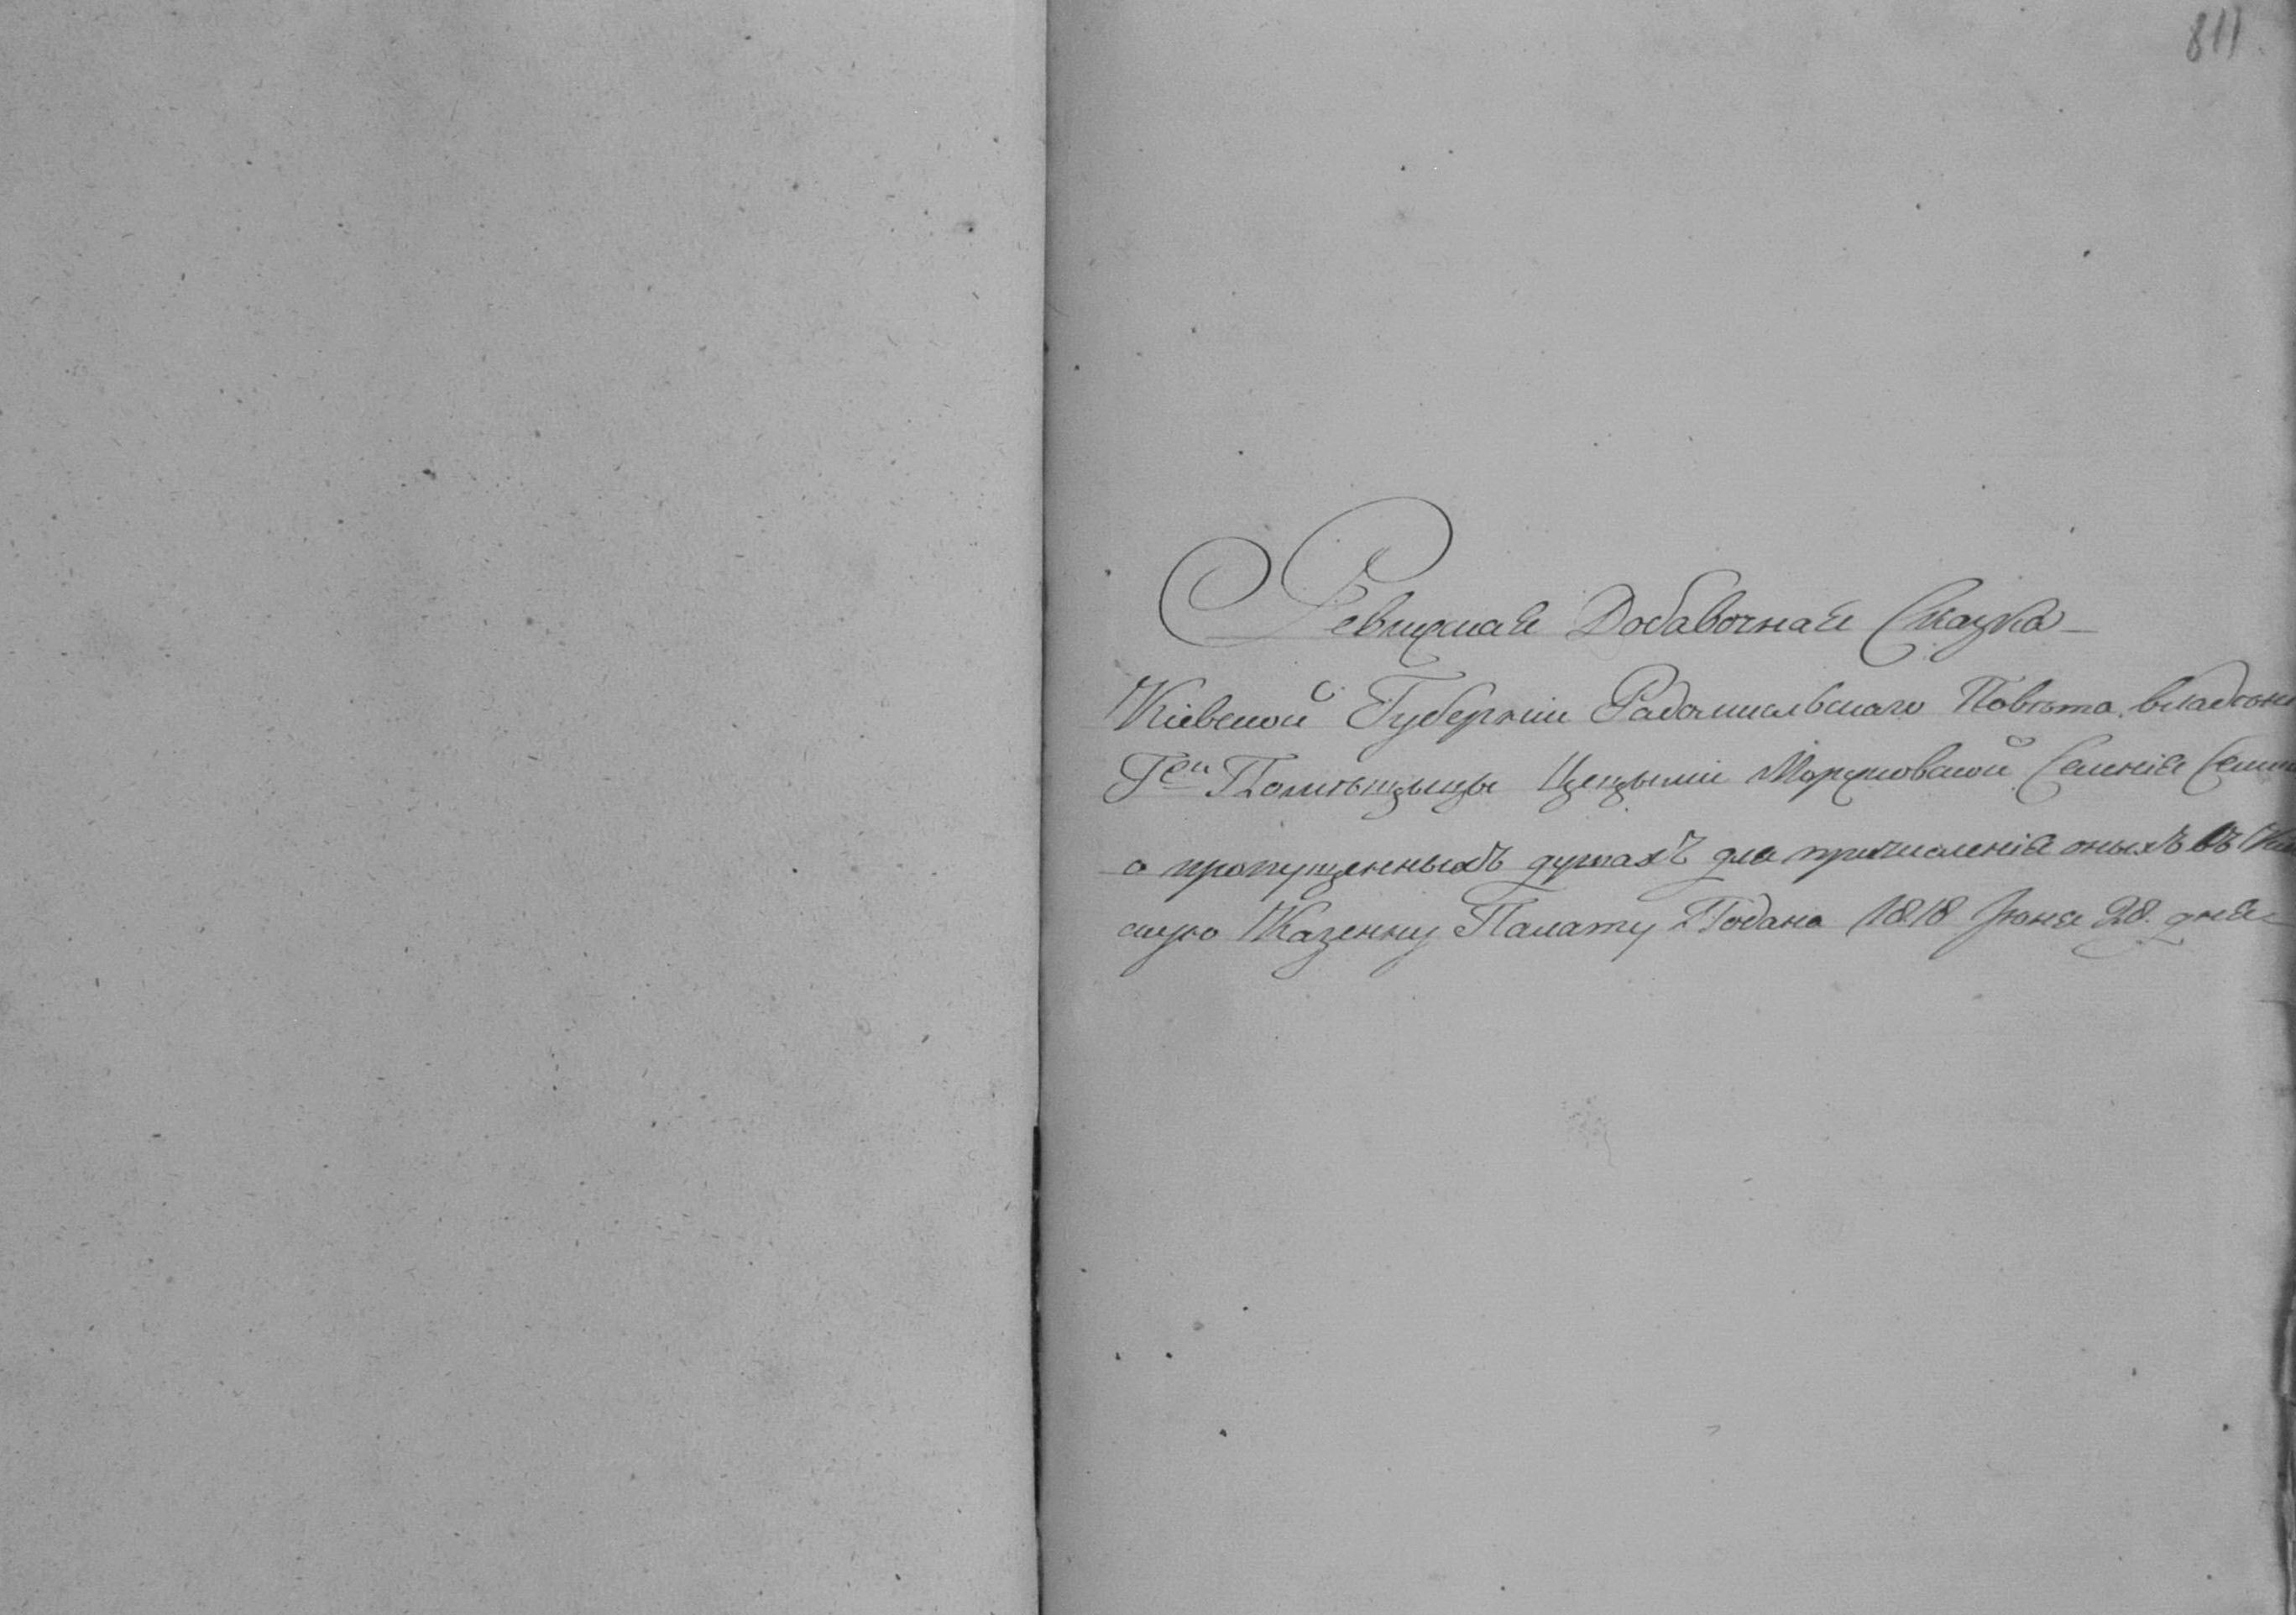 811
Ревизская Добавочная Сказка
Кіевской Губерніи Радомисльскаго Повѣта владѣнія
Г<sup>жи</sup> Помѣщыцы Цецыліи Моржковской Селенія
о пропущенныхъ душахъ для причисленія оныхъ въ Кіев
скую Казенну Палату Подана 1818 Іюня 28. дня